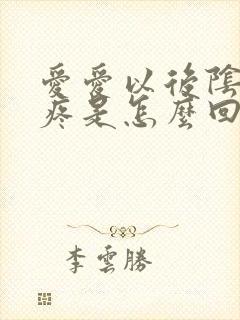 愛愛以後陰
疼是怎麼回
李雲勝